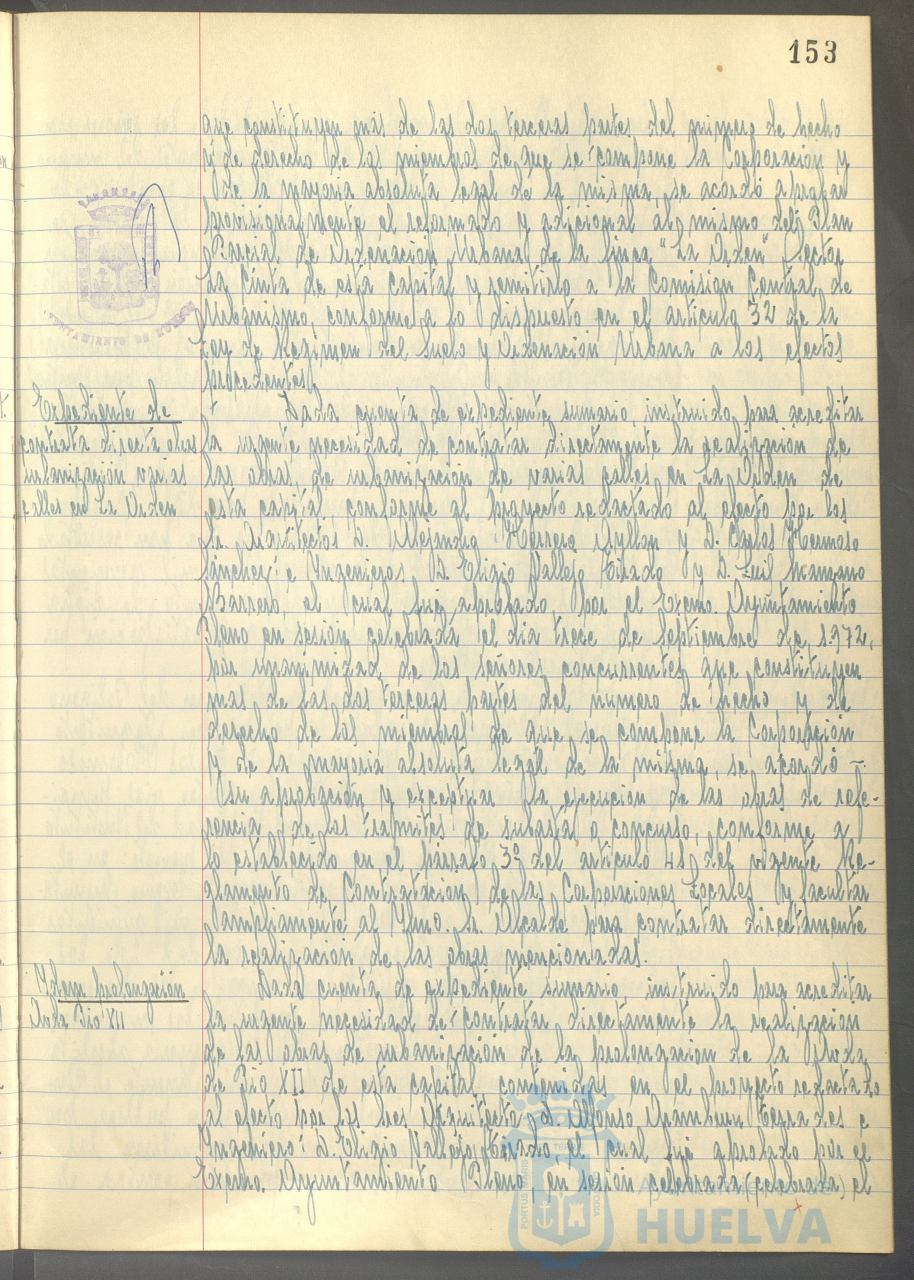 153
que constituyen más de las dos terceras partes del número de hecho
y de derecho de los miembros de que se compone la Corporación y
de la mayoria absoluta legal de la misma, se acordó aprobar
provisionalmente el reformado y adicional al mismo del Plan
Parcial de Ordenación Urbana de la finca "La Orden" Sector
La Cinta de esta Capital y remitirlo a la Comision Central de
Urbanismo, conforme a lo dispuesto en el artículo 32 de la
Ley de Regimen del Suelo y Ordenación Urbana a los efectos
procedentes.
Expediente de
contrata directa obras
urbanización varias
calles en La Orden
Dada cuenta de expediente sumario, instruido para acreditar
la urgente necesidad de contratar directamente la realización de
las obras, de urbanización de varias calles en La Orden de
esta capital conforme al proyecto redactado al efecto por los
Sr. Arquitectos D. Alejandro Herrero Ayllon y D. Carlos Hermoso
Sánchez e Ingenieros D. Eligio Vallejo Tirado y D. Luis Manzano
Barrero, el cual fué aprobado, por el Excmo. Ayuntamiento
Pleno en sesión celebrada el día trece de septiembre de 1.972,
por unanimidad, de los señores concurrentes, que constituyen
mas de las dos terceras partes del numero de hecho y de
derecho de los miembros de que se compone la Corporación
y de la mayoria absoluta legal de la misma, se acordó -
su aprobación y exceptuar la ejecución de las obras de refe-
rencia, de los tramites de subasta o concurso, conforme a
lo establecido en el párrafo 3º del artículo 41 del vigente Re-
glamento de Contratación de las Corporaciones Locales y facultar
ampliamente al Ilmo. Sr. Alcalde para contratar directamente
la realización de las obras mencionadas.
Idem prolongación
Avda Pio XII
Dada cuenta de expediente sumario instruido para acreditar
la urgente necesidad de contratar directamente la realización
de las obras de urbanización de la prolongación de la Avda
de Pio XII de esta capital contenidas en el proyecto redactado
al efecto por los Sres Arquitecto D. Alfonso Aramburu Terrades e
Ingeniero D. Eligio Vallejo Tirado, el cual fué aprobado por el
Excmo. Ayuntamiento Pleno en sesión celebrada (celebrada) el
AYUNTAMIENTO DE HUELVA
HUELVA